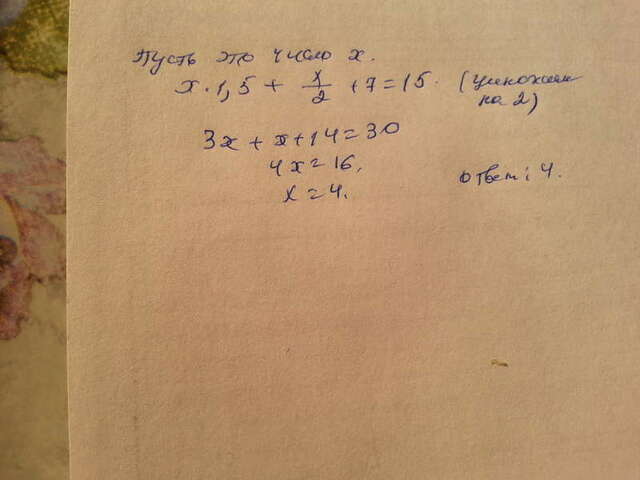 Пусть это число x.
x·1,5 + x/2 + 7 = 15. (умножим на 2)
3x + x + 14 = 30
4x = 16.
x = 4.
Ответ: 4.